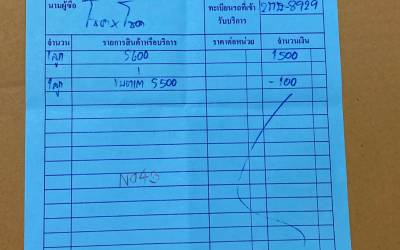 นามผู้ซื้อ ทะเบียนรถที่เข้ารับบริการ -8929
จำนวน รายการสินค้าหรือบริการ ราคาต่อหน่วย จำนวนเงิน
1 ลูก 5600 1500
1 ลูก 5500 -100
N04S